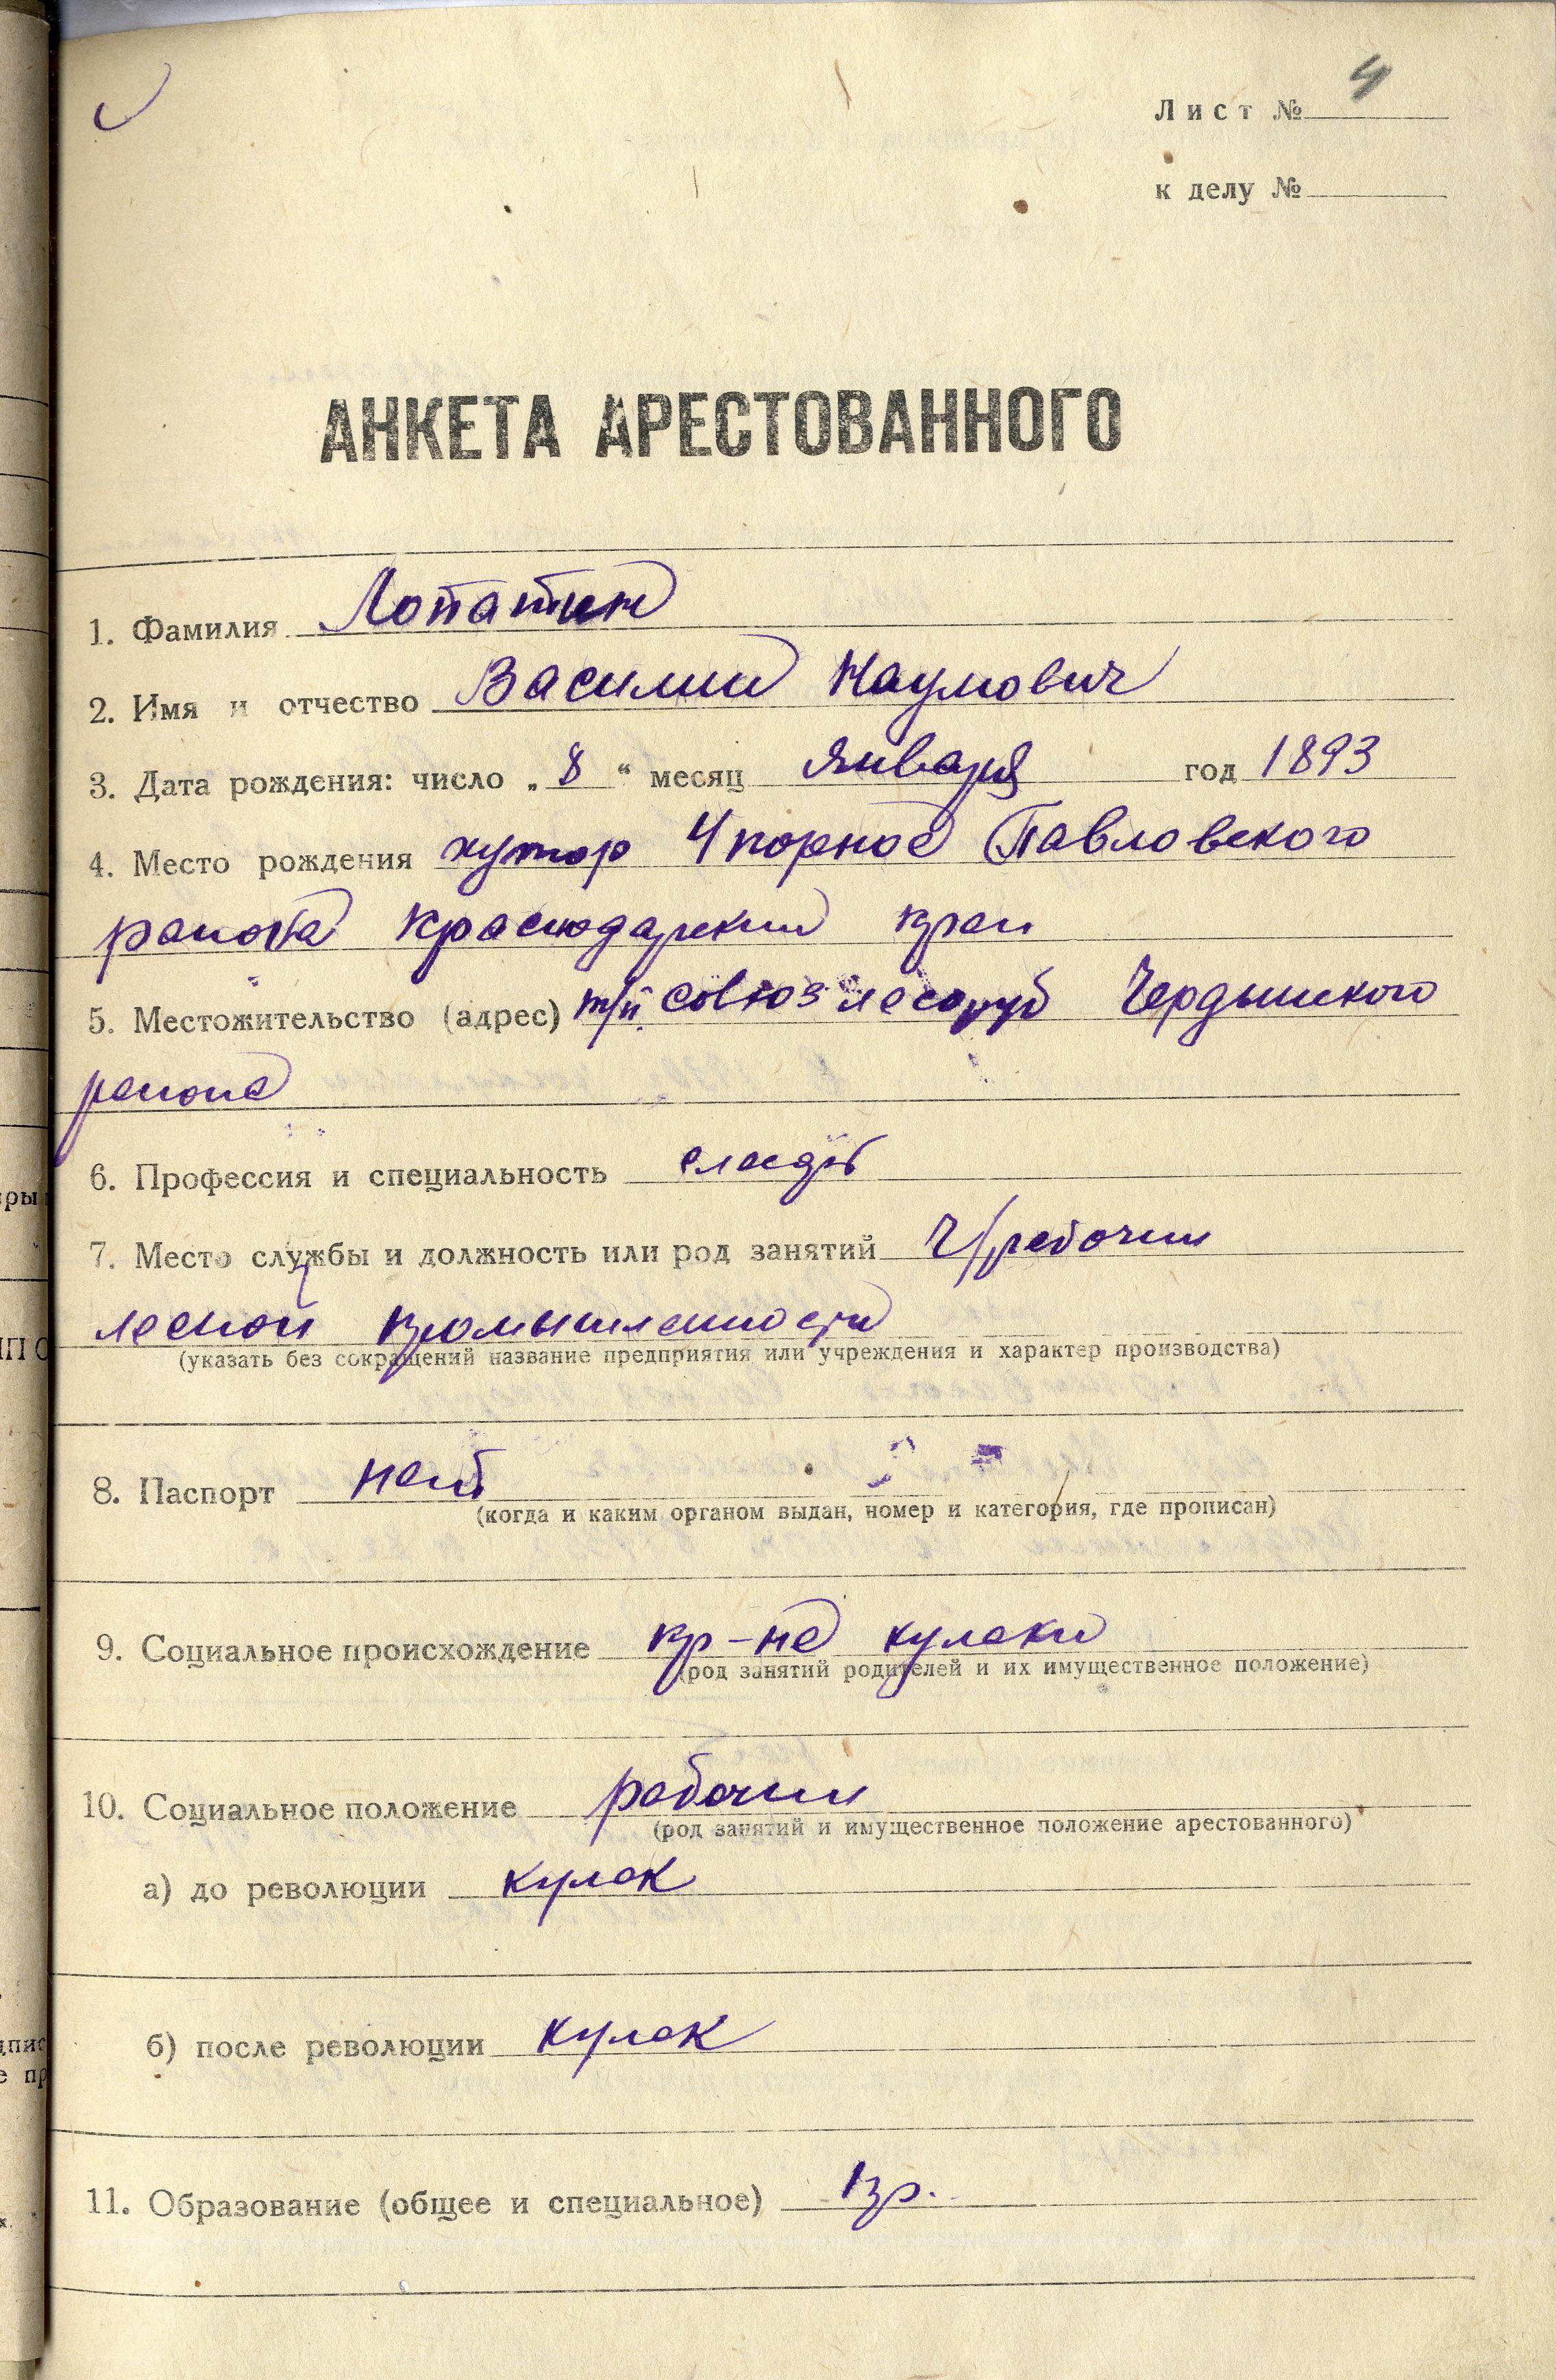 Лист № 4
к делу №
АНКЕТА АРЕСТОВАННОГО
1. Фамилия Лопатин
2. Имя и отчество Василий Наумович
3. Дата рождения: число „ 8 “ месяц января год 1893
4. Место рождения хутор Упорное Павловского
района Краснодарский край
5. Местожительство (адрес) т/п. Союзлесоруб Чердынского
района
6. Профессия и специальность
7. Место службы и должность или род занятий Ч/рабочий
лесной промышленности
(указать без сокращений название предприятия или учреждения и характер производства)
8. Паспорт нет
(когда и каким органом выдан, номер и категория, где прописан)
9. Социальное происхождение кр-не кулаки
(род занятий родителей и их имущественное положение)
10. Социальное положение рабочий
(род занятий и имущественное положение арестованного)
а) до революции кулак
б) после революции кулак
11. Образование (общее и специальное)